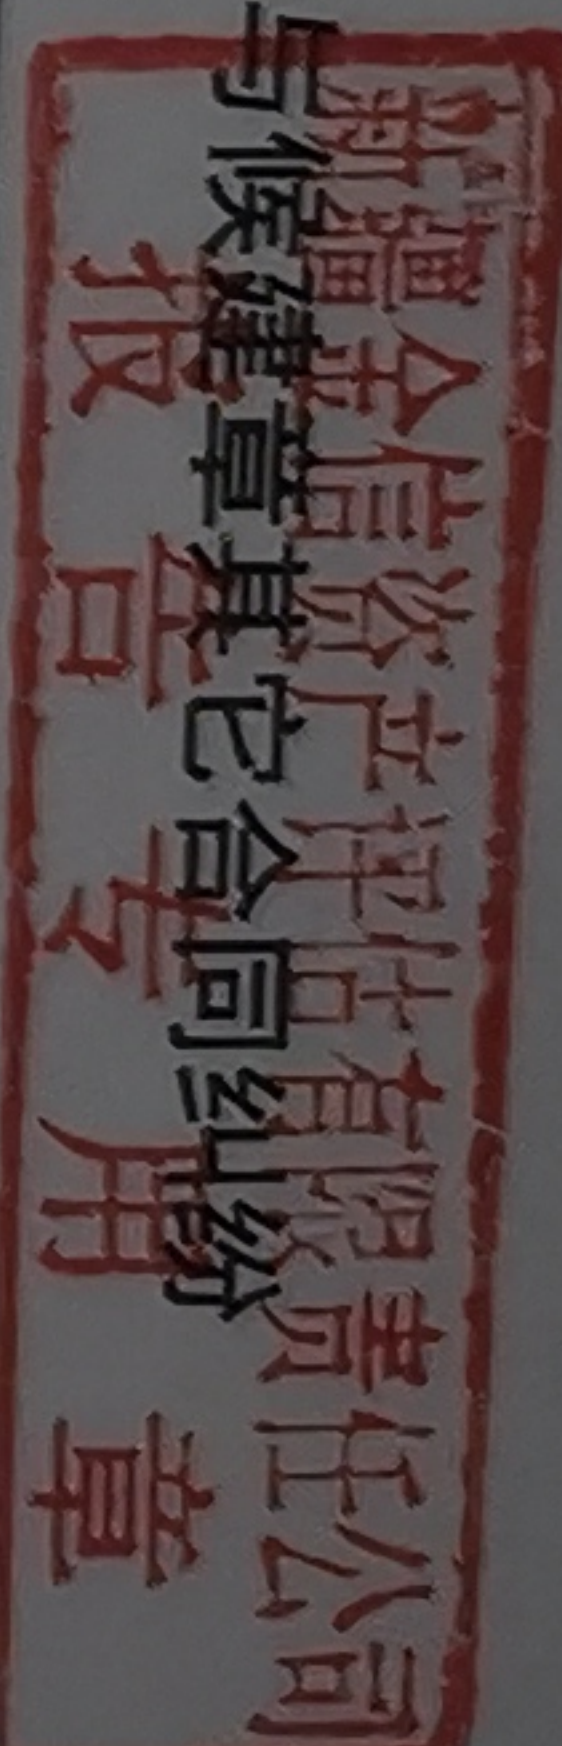 新疆金信资产评估有限责任公司
与侯建章其它合同纠纷
报告专用章